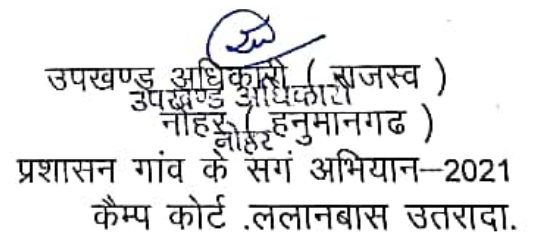 उपखण्ड अधिकारी ( राजस्व )
उपखण्ड अधिकारी
नोहर ( हनुमानगढ )
नोहर
प्रशासन गांव के सगं अभियान–2021
कैम्प कोर्ट .ललानबास उतरादा.